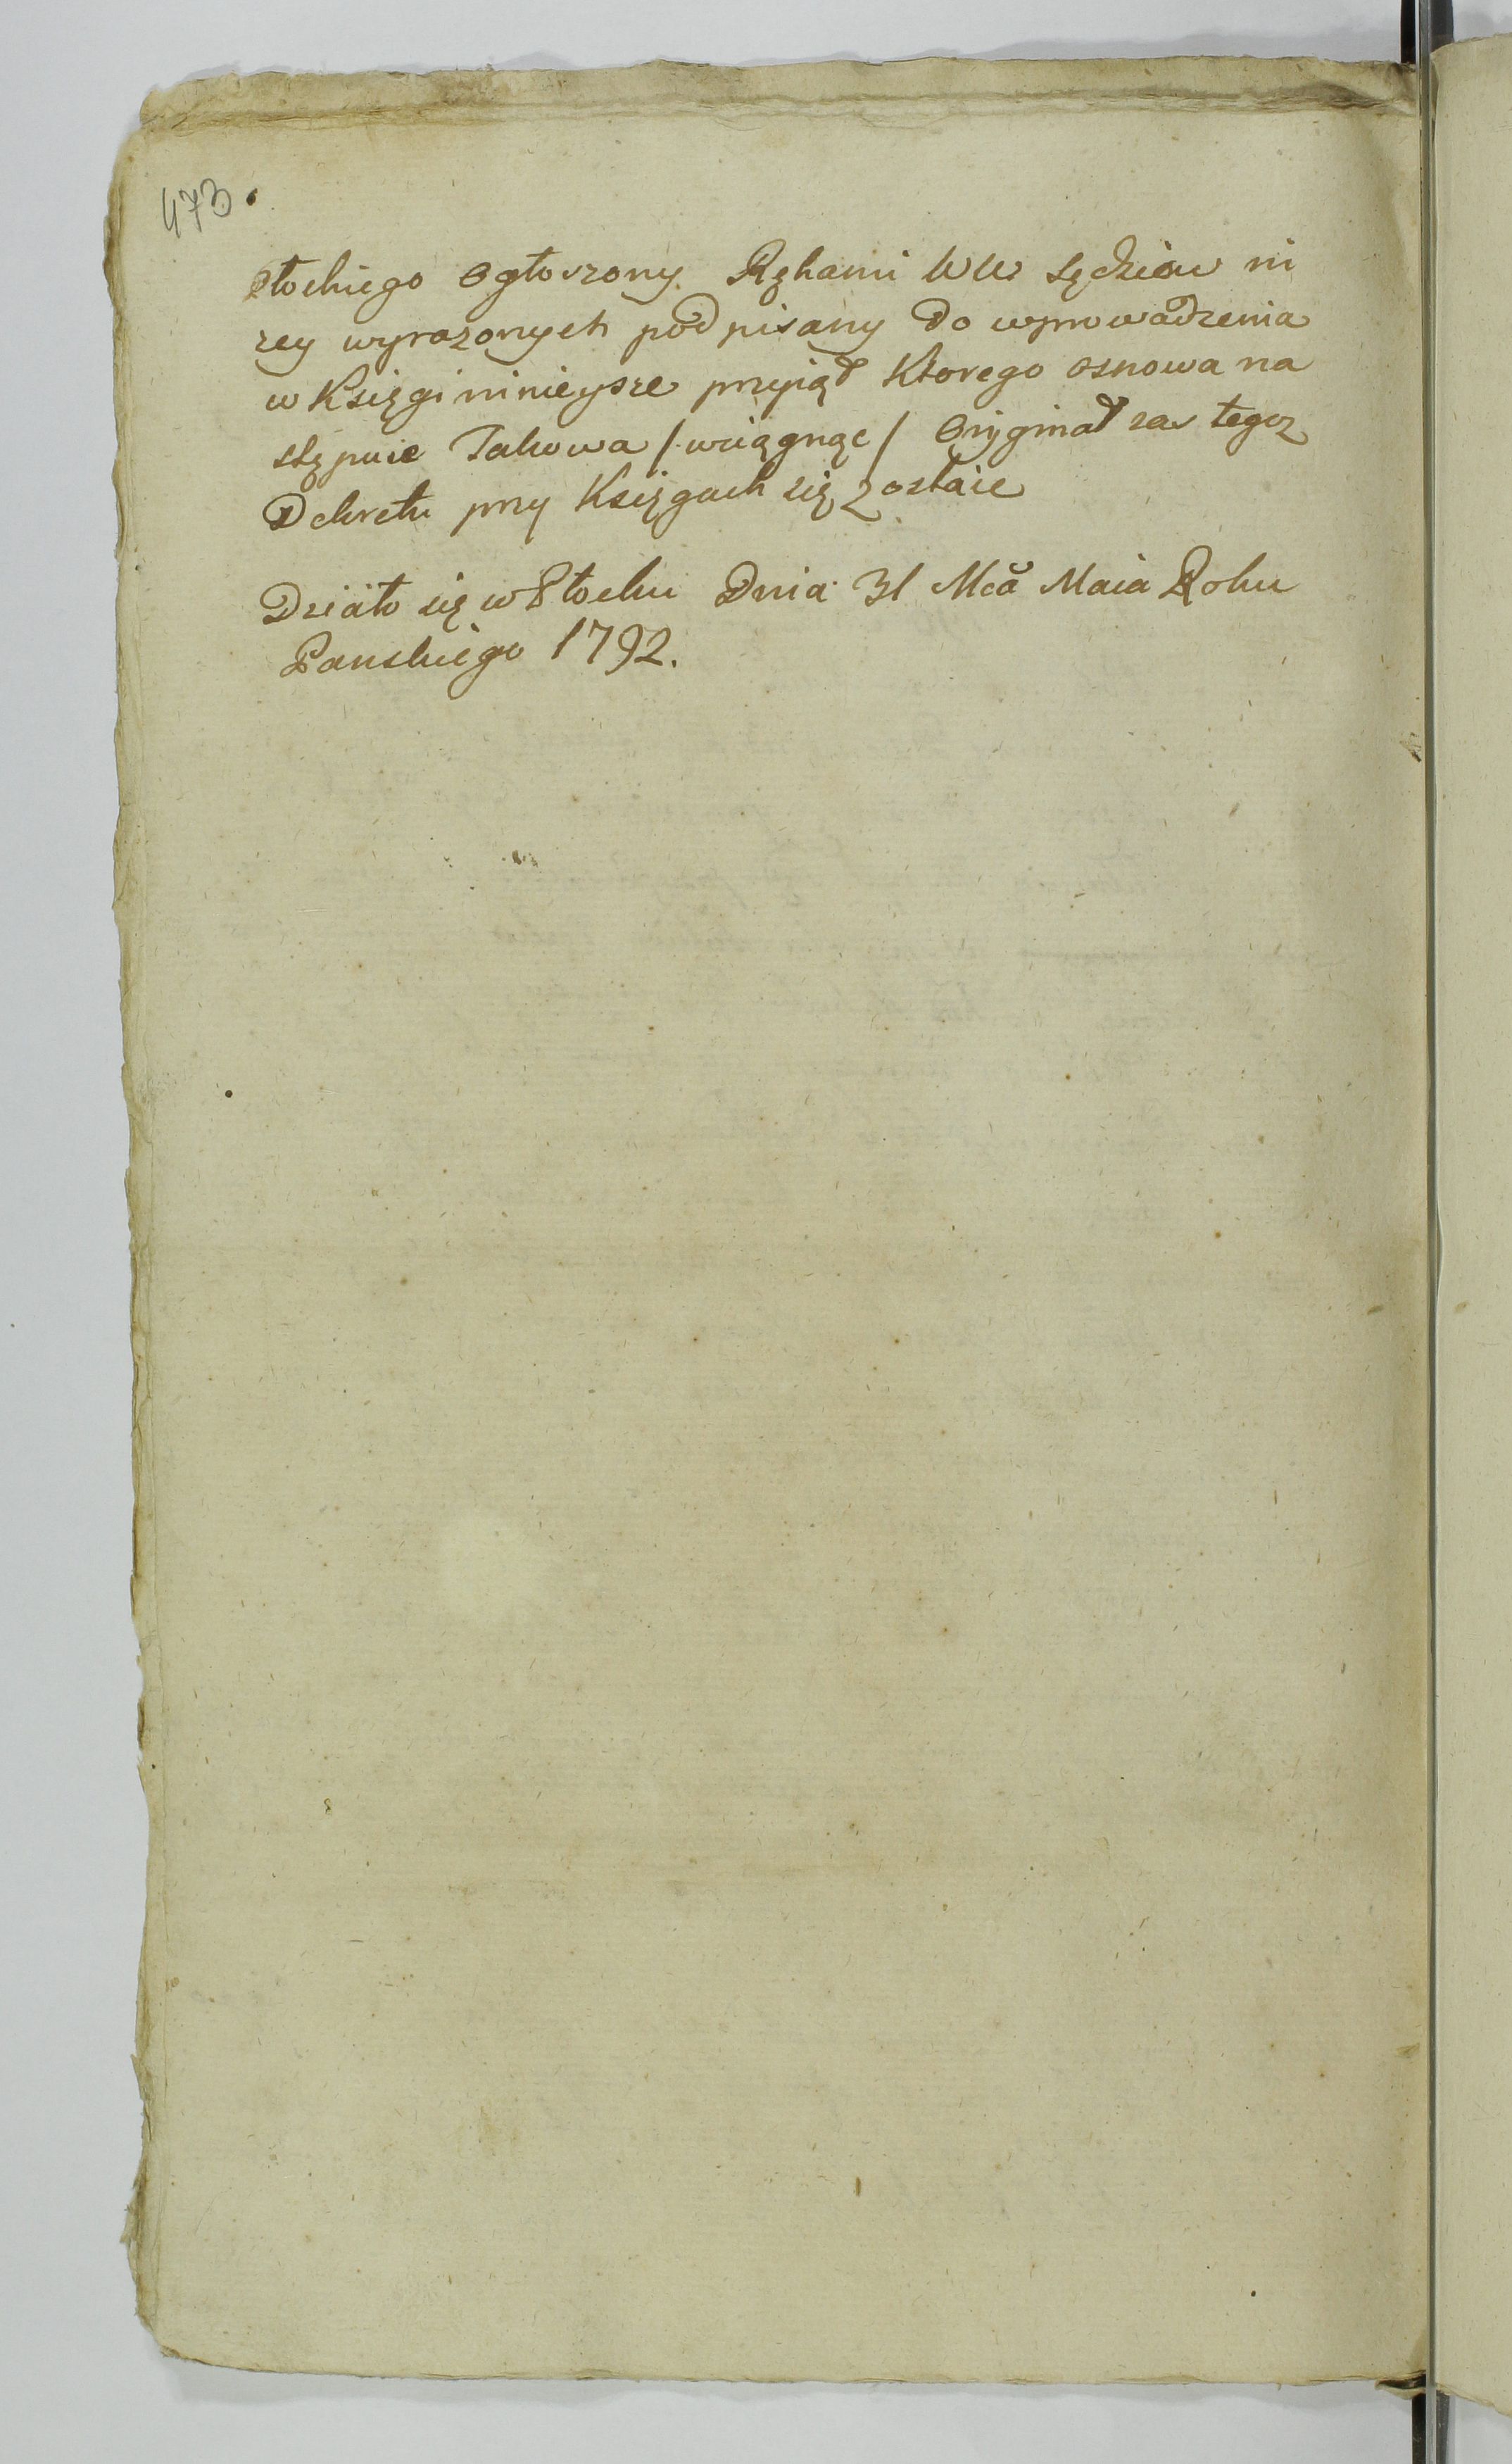 473.
Płockiego Ogłoszony Rękami WW Sędziow ni
zey wyrazonych podpisany do wprowadzenia
w Księgi ninieysze przyiął Ktorego osnowa na
stępuie Takowa /: wciągnąć / Oryginał zas tegoz
Dekretu przy Księgach się zostaie
Działo się w Płocku Dnia 31 Mca Maia Roku
Panskiego 1792.